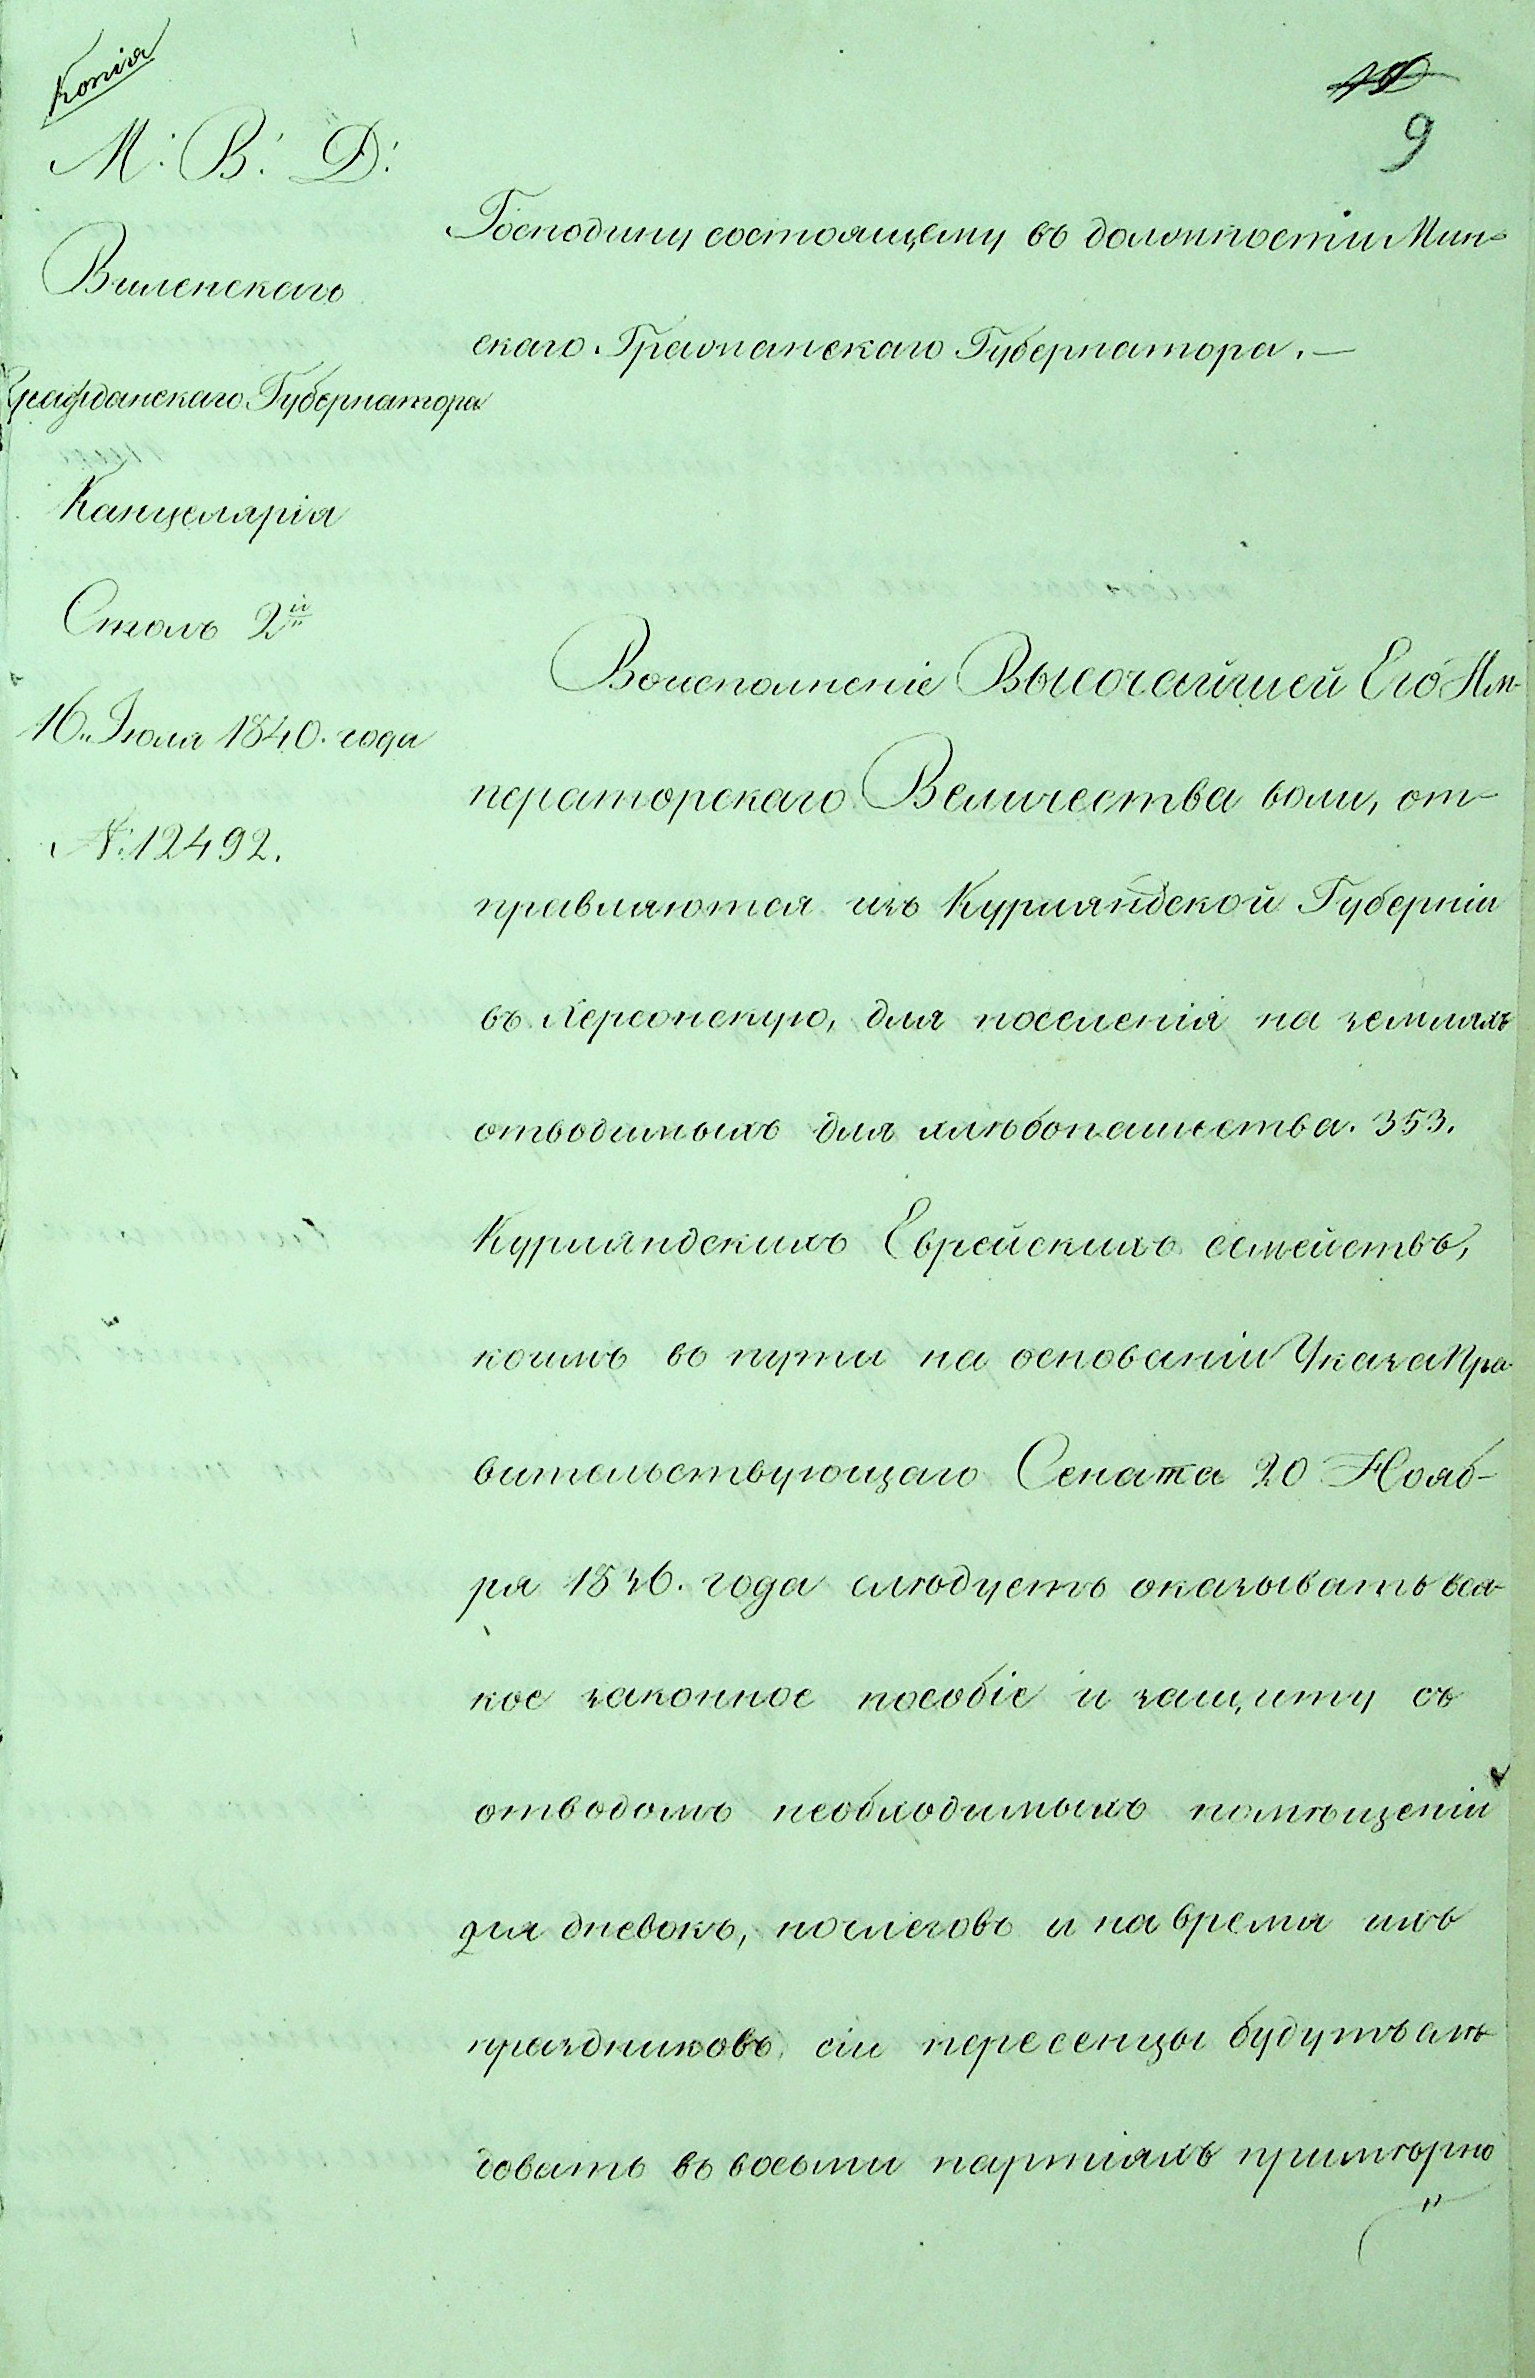 Копія
М: В: Д:
Виленскаго
Гражданскаго Губернатора
Канцелярія
Столъ 2й
16 Іюля 1840. года
№ 12492.
9
Господину состоящему въ должности Мин-
скаго Гражданскаго Губернатора.—
Воисполненіе Высочайшей Его Им-
ператорскаго Величества воли, от-
правляются изъ Курляндской Губерніи
въ Херсонскую, для поселенія на земляхъ
отводимыхъ для хлѣбопашества. 353.
Курляндскихъ Еврейскихъ семействъ,
коимъ въ пути на основаніи Указа Пра-
вительствующаго Сената 20 Нояб-
ря 1836. года слѣдуетъ оказывать вся-
кое законное пособіе и защиту съ
отводомъ необходимыхъ помѣщеній
для дневокъ, ночлеговъ и на время ихъ
праздниковъ, сіи пересенцы будутъ слѣ-
довать въ восьми партіяхъ примѣрно